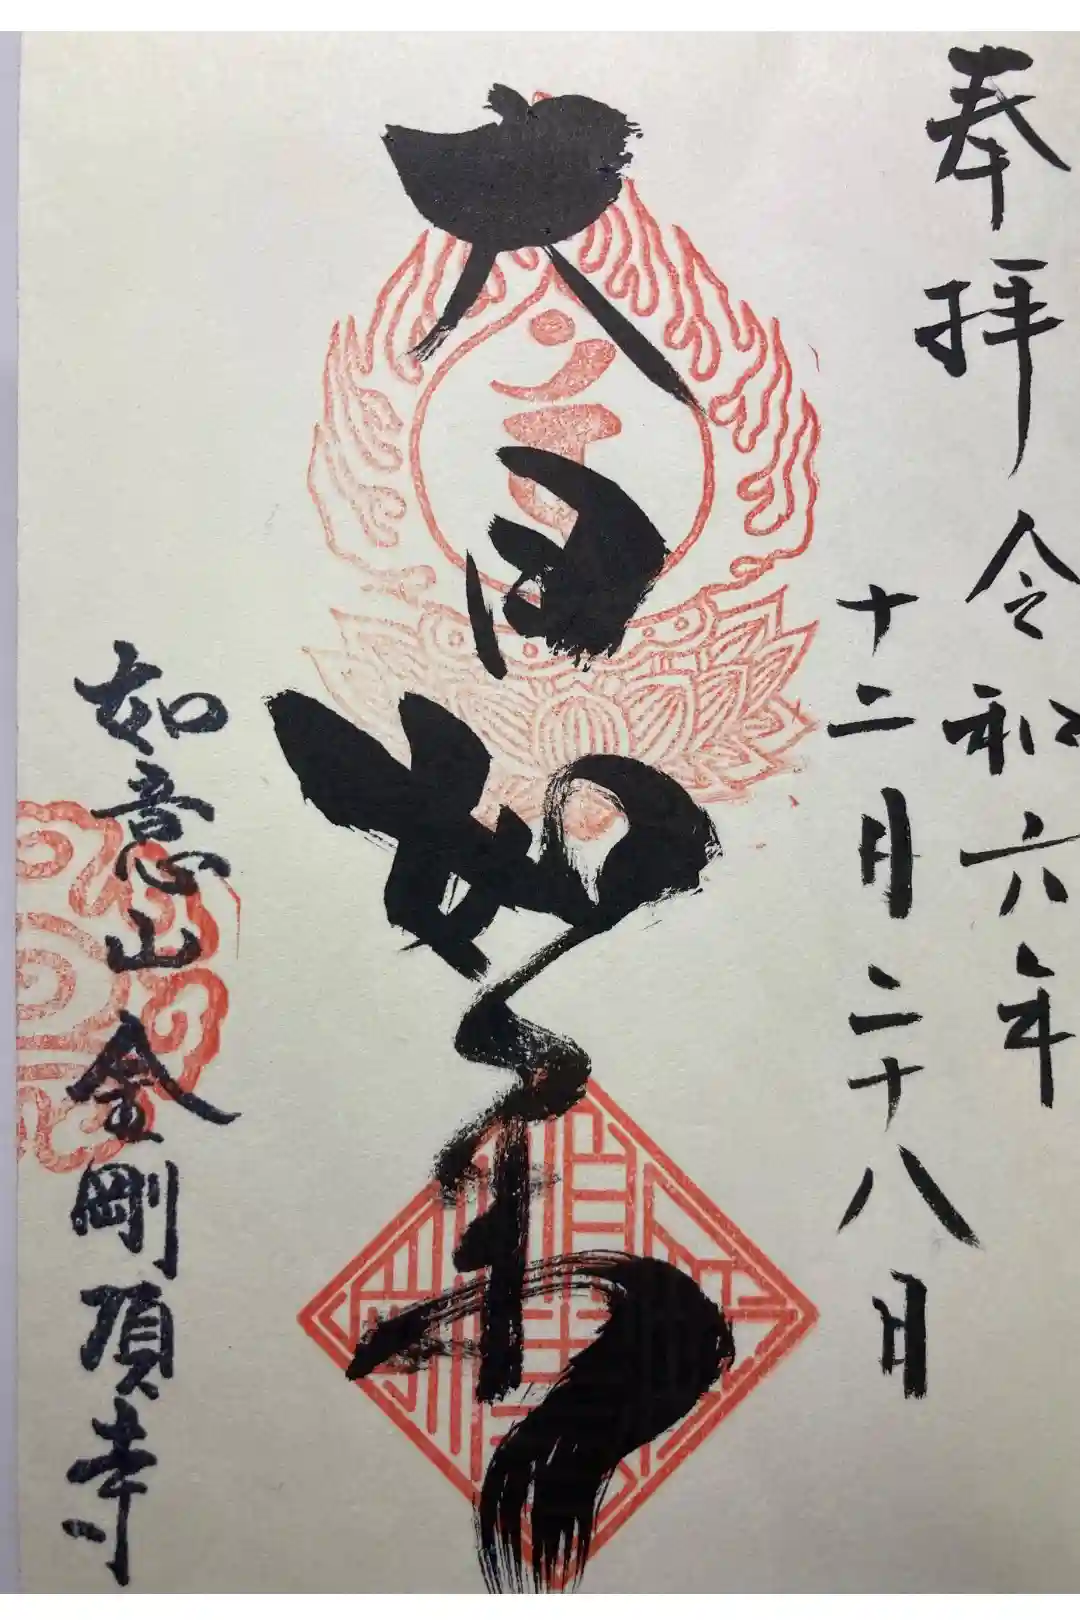 奉拝 令和六年
十二月二十八日
大日如来
如意山 金剛頂寺